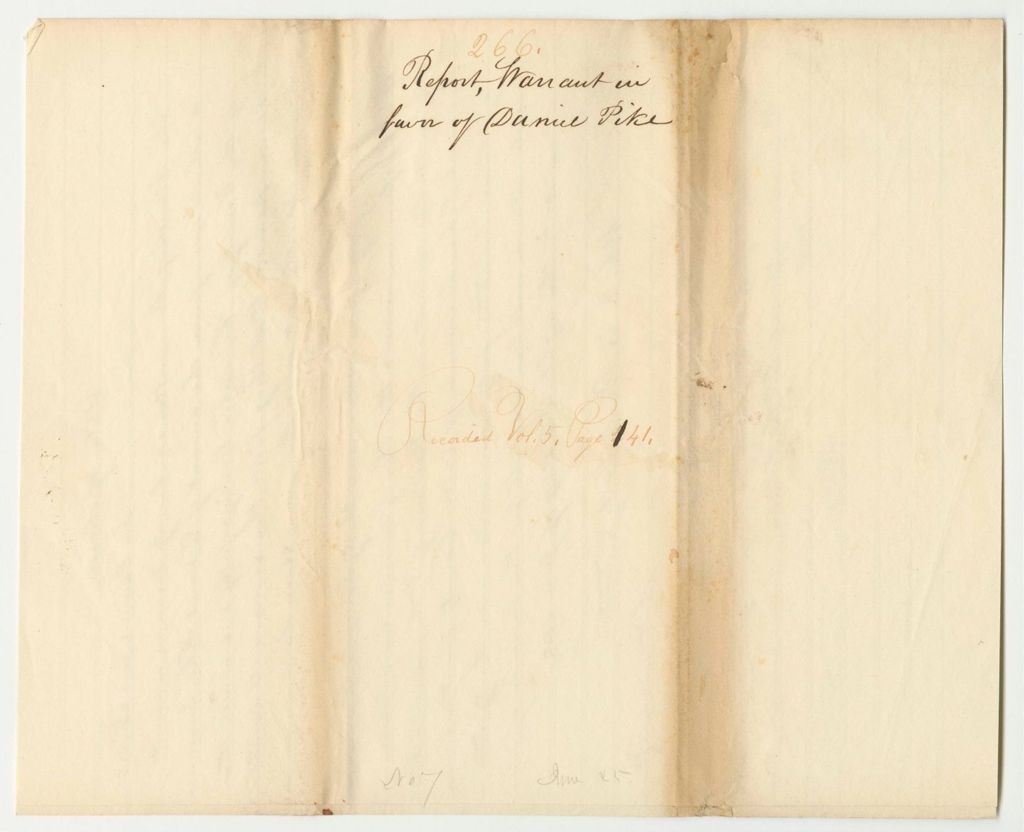 266.
Report, Warrant in
favor of Daniel Pike
Recorded Vol. 5, Page 141.
No 7 June 25